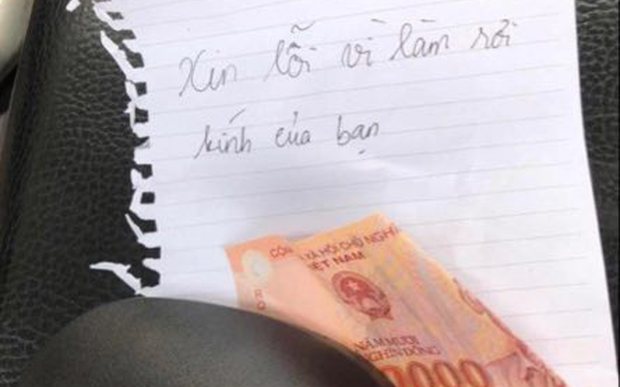 Xin lỗi vì làm rơi
kính của bạn
CỘN
XÃ HỘI CHỦ NGHĨ
VIỆT NAM
NĂM MƯƠI
NGHÌN ĐỒNG
000